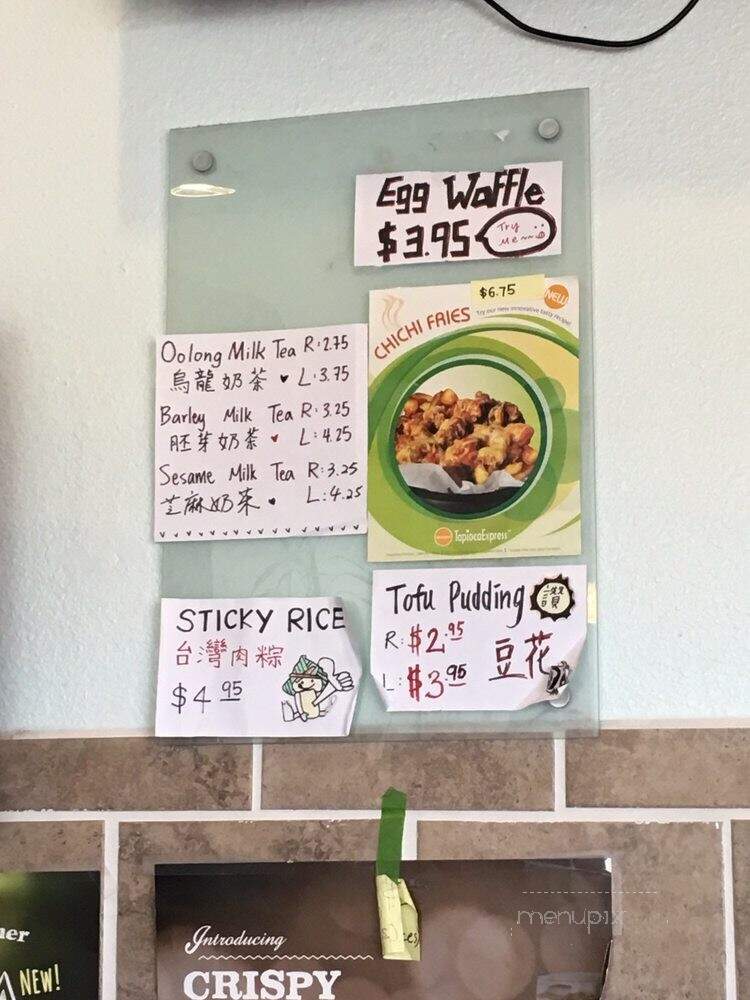 Egg Waffle
$3.95
Try
Me~~
$6.75
NEW
CHICHI FRIES
Try our new innovative tasty recipe!
TapiocaExpress
Oolong Milk Tea R:2.75
烏龍奶茶 ♥ L:3.75
Barley Milk Tea R:3.25
胚芽奶茶 ♥ L:4.25
Sesame Milk Tea R:3.25
芝麻奶茶 ♥ L:4.25
STICKY RICE
台灣肉粽
$4.95
Tofu Pudding
讚
R: $2.95
豆花
L: $3.95
Introducing
CRISPY
NEW!
menupix